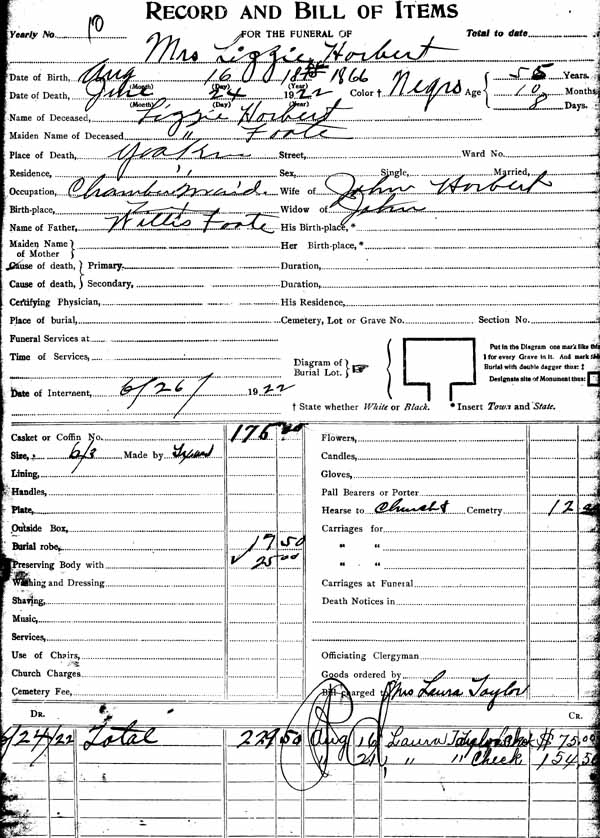 RECORD AND BILL OF ITEMS
Yearly No. 10 FOR THE FUNERAL OF Total to date
Mrs Lizzie Horbert
Date of Birth, Aug 16 1866
(Month) (Day) (Year)
Date of Death, June 24 1922 Color † Negro Age { 55 Years. 10 Months 8 Days.
(Month) (Day) (Year)
Name of Deceased, Lizzie Horbert
Maiden Name of Deceased " Foote
Place of Death, Street, Ward No.
Residence, " Sex, Single, Married,
Occupation, Chambermaid Wife of John Horbert
Birth-place, Widow of John
Name of Father, Willis Foote His Birth-place, *
Maiden Name of Mother } Her Birth-place, *
Cause of death, } Primary. Duration,
Cause of death, } Secondary, Duration,
Certifying Physician, His Residence,
Place of burial, Cemetery, Lot or Grave No. Section No.
Funeral Services at
Time of Services,
Diagram of Burial Lot. }
Put in the Diagram one mark like this
1 for every Grave in it. And mark this
Burial with double dagger thus: ‡
Designate site of Monument thus:
Date of Interment, 6/26/ 1922
† State whether White or Black. * Insert Town and State.
Casket or Coffin No. 175 00 Flowers,
Size, 6/3 Made by Candles,
Lining, Gloves,
Handles, Pall Bearers or Porter
Plate, Hearse to Church & Cemetry 12 00
Outside Box, Carriages for
Burial robe, 17 50 " "
Preserving Body with ✓ 25 00 " "
Washing and Dressing Carriages at Funeral
Shaving, Death Notices in
Music,
Services,
Use of Chairs, Officiating Clergyman
Church Charges Goods ordered by
Cemetery Fee, Bill charged to Mrs Laura Taylor
DR. CR.
6/24/22 Total 229 50 Aug 16 Laura Taylor $75.00
" 21 " " Check 154.50